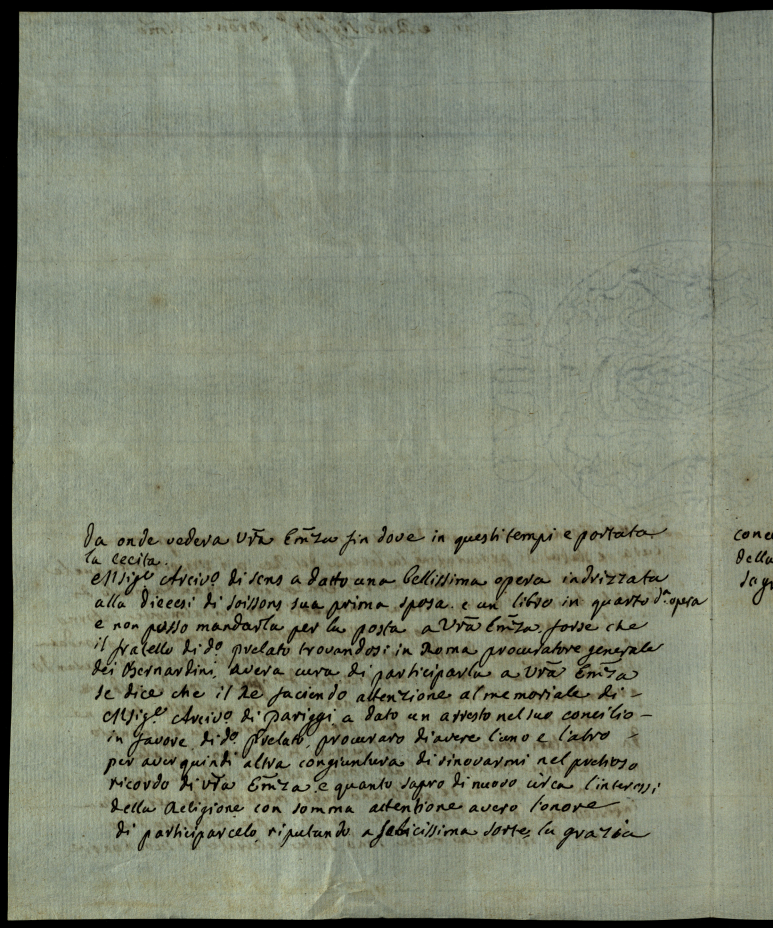 Da onde vedera Vr̃a Em̃za fin dove in questi tempi e portata
la cecita.
Msigre Arcivo. di sens a datto una bellissima opera indrizzata
alla diecesi di soissons sua prima sposa. e un libro in quarto da. opera
e non posso mandarla per la posta a Vr̃a Em̃za, forse che
il fratello di do. prelato trovandosi in Roma procuratore generale
dei Bernardini, avera cura di participarla a Vr̃a Em̃za
se dice che il Re faciendo attenzione al memoriale di -
Msige. Arcivo. di pariggi a dato un arresto nel suo concilio -
in favore di do. Prelato, procuraro di avere l'uno e l'altro -
per aver quindi altra congiuntura di rinovarmi nel prezioso
ricordo di Vr̃a Em̃za, e quanto sapro di nuovo circa l'interessi
della Religione con somma attenzione avero l'onore
di participarcelo, riputando a felicissima sorte, la grazia
della